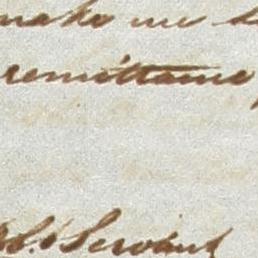 make me
remittance
Servant